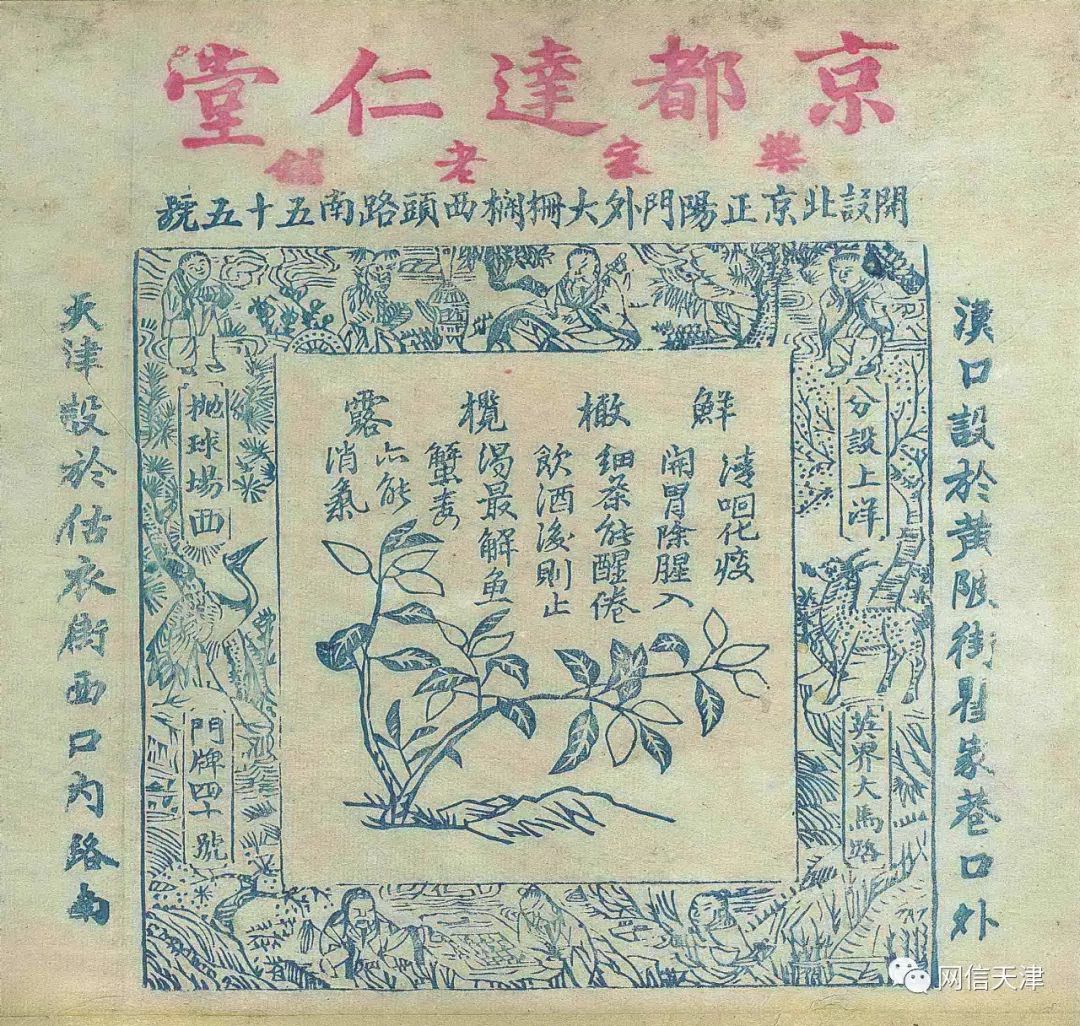 京都達仁堂
樂家老舖
開設北京正陽門外大柵欄西頭路南五十五號
漢口設於黃陂街家巷口外
分設上洋
英界大馬路
鮮橄欖露
清咽化痰
開胃除腥入
細茶能醒倦
飲酒後則止
渴最解魚
蟹毒
能
消氣
拋球場西
門牌四十號
天津設於估衣街西口內路南
网信天津